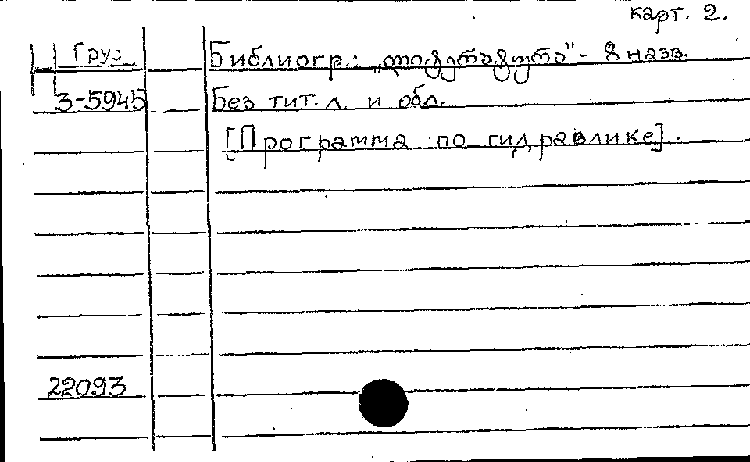 карт. 2.
Груз.
3-5945
Библиогр.: „ლიტერატურა" - 8 назв.
Без тит. л. и обл.
[Программа по гидравлике].
22093